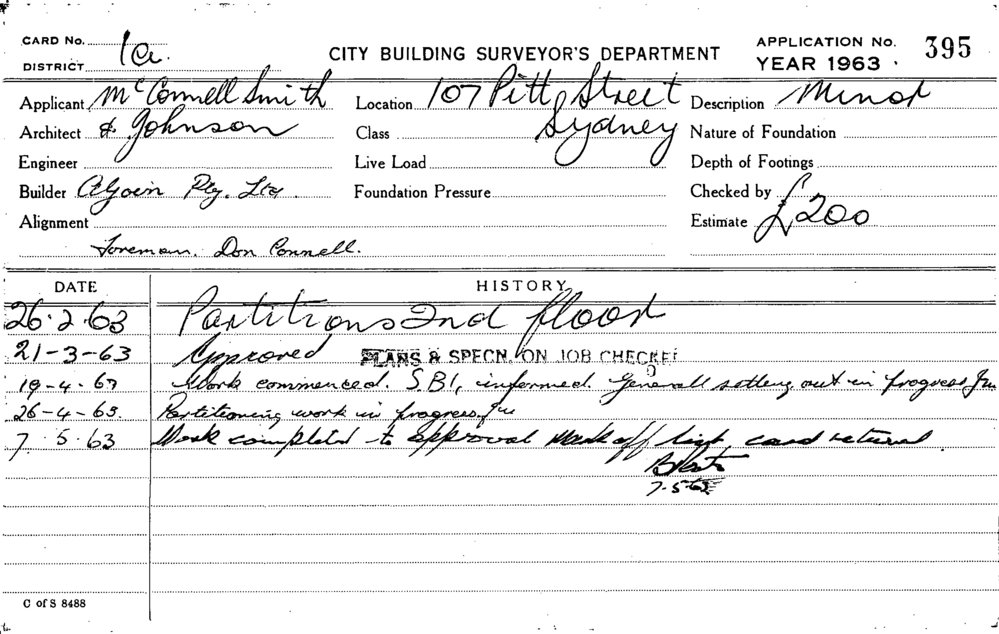 CARD No. 1a.
DISTRICT
CITY BUILDING SURVEYOR'S DEPARTMENT
APPLICATION No. 395
YEAR 1963
Applicant McConnell Smith
Location 107 Pitt Street
Description Minor
Architect & Johnson
Class Sydney
Nature of Foundation
Engineer
Live Load
Depth of Footings
Builder Pty. Ltd.
Foundation Pressure
Checked by
Alignment
Estimate £200
Foreman. Don Connell.
DATE HISTORY
26.2.63 Partitions 2nd floor
21-3-63 Approved PLANS & SPECN. ON JOB CHECKED
19-4-63 Work commenced. S.B.I. informed. setting out in progress
26-4-63. Partitioning work in progress.
7.5.63 Work completd to approval Mark off list, card returned
7-5-63
C of S 8488